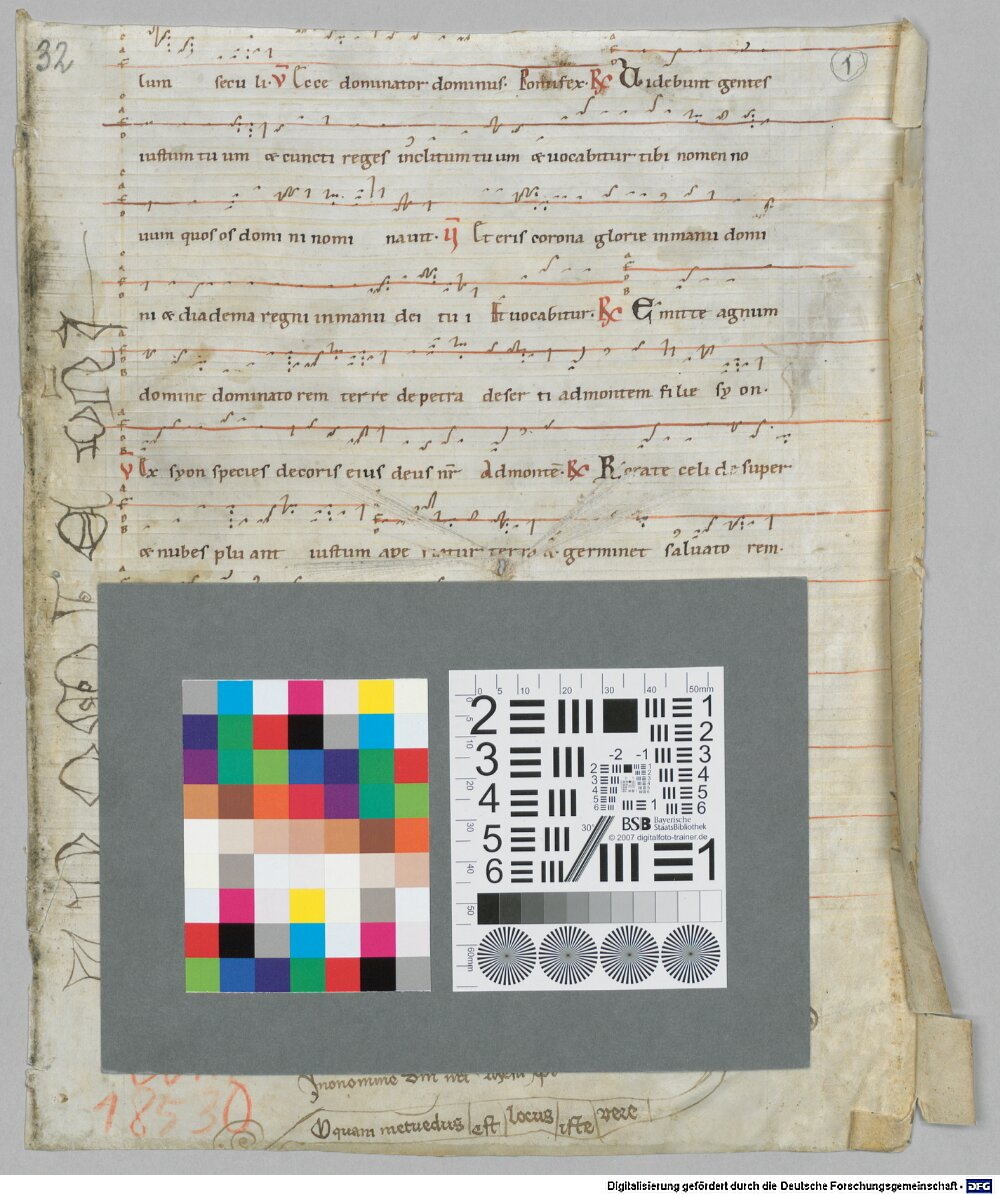 32
1
lum secu li. V Ecce dominator dominus. Pontifex. R Uidebunt gentes
iustum tu um & cuncti reges inclitum tu um & uocabitur tibi nomen no
uum quos os domi ni nomi nauit. V Et eris corona glorie inmanu domi
ni & diadema regni inmanu dei tu i Et uocabitur. R Emitte agnum
domine dominato rem terre depetra deser ti admontem filie sy on.
V Ex syon species decoris eius deus nr̄ Admontē. R Rorate celi desuper
& nubes plu ant iustum ape riatur terra & germinet saluato rem.
0 5 10 20 30 40 50mm
2 1
2
3 3
-2 -1
4 4
5 5
6 6
30°
BSB Bayerische StaatsBibliothek
© 2007 digitalfoto-trainer.de
1
18530
O quam metuedus est locus iste vere
Digitalisierung gefördert durch die Deutsche Forschungsgemeinschaft - DFG